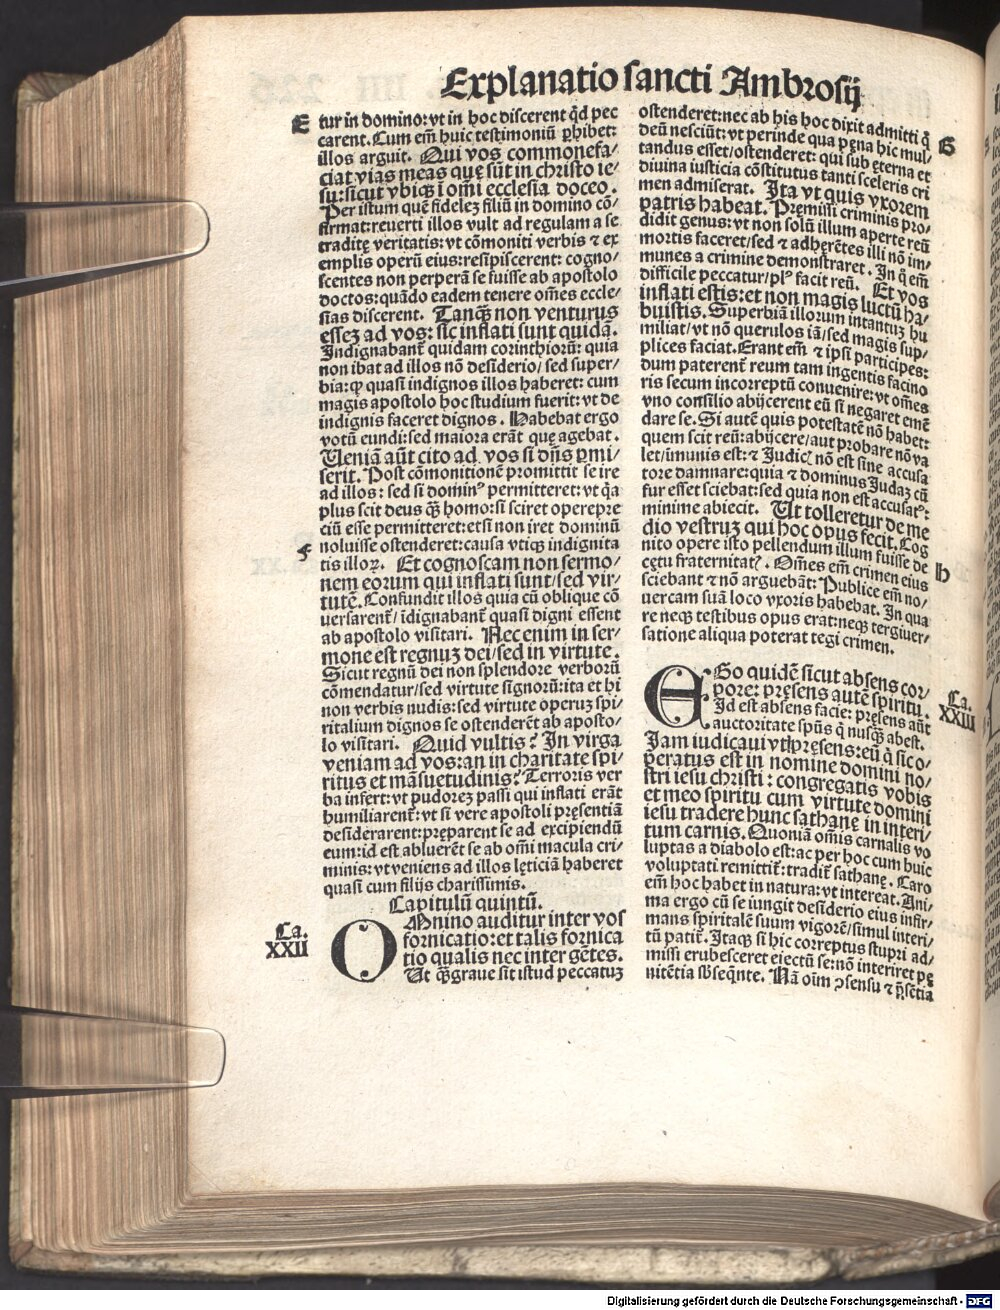 Explanatio sancti Ambrosij
E
tur in domino: vt in hoc discerent qd pec
carent. Cum em̄ huic testimoniū ꝑhibet:
illos arguit. Qui vos commonefa/
ciat vias meas quę sūt in christo ie/
su: sicut vbiqꝫ ī om̄i ecclesia doceo.
Per istum quē fidelez filiū in domino cō/
firmat: reuerti illos vult ad regulam a se
traditę veritatis: vt cōmoniti verbis ⁊ ex
emplis operū eius: resipiscerent: cogno/
scentes non perperā se fuisse ab apostolo
doctos: quādo eadem tenere om̄es eccle/
sias discerent. Tanqꝫ non venturus
essez ad vos: sic inflati sunt quidā.
Indignabant̄ quidam corinthiorū: quia
non ibat ad illos nō desiderio/ sed super/
bia: ꝙ quasi indignos illos haberet: cum
magis apostolo hoc studium fuerit: vt de
indignis faceret dignos. Habebat ergo
votū eundi: sed maiora erāt quę agebat.
Ueniā aūt cito ad vos si dn̄s ꝑmi/
serit. Post cōmonitionē promittit se ire
ad illos: sed si dominꝰ permitteret: vt q̄a
plus scit deus qꝫ homo: si sciret operepre
ciū esse permitteret: etsi non iret dominū
f
noluisse ostenderet: causa vtiqꝫ indignita
tis illoꝝ. Et cognoscam non sermo/
nem eorum qui inflati sunt/ sed vir/
tutē. Confundit illos quia cū oblique cō
uersarent̄/ īdignabant̄ quasi digni essent
ab apostolo visitari. Nec enim in ser/
mone est regnuz dei/ sed in virtute.
Sicut regnū dei non splendore verborū
cōmendatur/ sed virtute signorū: ita et hi
non verbis nudis: sed virtute operuz spi/
ritalium dignos se ostenderēt ab aposto/
lo visitari. Quid vultis? In virga
veniam ad vos: an in charitate spi/
ritus et māsuetudinis? Terroris ver
ba insert: vt pudorez passi qui inflati erāt
humiliarent̄: vt si vere apostoli pręsentiā
desiderarent: pręparent se ad excipiendū
eum: id est abluerēt se ab om̄i macula cri/
minis: vt veniens ad illos lęticiā haberet
quasi cum filijs charissimis.
Capitulū quintū.
La.
XXII
OMnino auditur inter vos
fornicatio: et talis fornica
tio qualis nec inter gētes.
Ut qꝫgraue sit istud peccatuz
ostenderet: nec ab his hoc dixit admitti q̄
G
deū nesciūt: vt perinde qua pęna hic mul/
tandus esset/ ostenderet: qui sub ęterna et
diuina iusticia cōstitutus tanti sceleris cri
men admiserat. Ita vt quis vxorem
patris habeat. Pręmissi criminis pro/
didit genus: vt non solū illum aperte reū
mortis faceret/ sed ⁊ adherētes illi nō im/
munes a crimine demonstraret. In q̄ em̄
difficile peccatur/ plꝰ facit reū. Et vos
inflati estis: et non magis luctū ha/
buistis. Superbiā illorum intantuz hu
miliat/ vt nō querulos iā/ sed magis sup/
plices faciat. Erant em̄ ⁊ ipsi participes:
dum paterent̄ reum tam ingentis facino
ris secum incorreptū conuenire: vt om̄es
vno consilio abijcerent eū si negaret emē
dare se. Si autē quis potestatē nō habet:
quem scit reū: abijcere/ aut probare nō va
let/ imunis est: ⁊ Judicꝭ nō est sine accusa
tore damnare: quia ⁊ dominus Judaz cū
fur esset sciebat: sed quia non est accusatꝰ:
minime abiecit. Ut tolleretur de me
dio vestruz qui hoc opus fecit. Cog
nito opere isto pellendum illum fuisse de
h
cętu fraternitatꝭ. Om̄es em̄ crimen eius
sciebant ⁊ nō arguebāt: Publice em̄ no/
uercam suā loco vxoris habebat. In qua
re neqꝫ testibus opus erat: neqꝫ tergiuer/
satione aliqua poterat tegi crimen.
La.
XXIII
EGo quidē sicut absens cor/
pore: pręsens autē spiritu.
Id est absens facie: pręsens aūt
auctoritate spūs q̄ nusqꝫ abest.
Jam iudicaui vt pręsens: eū q̄ sic o/
peratus est in nomine domini no/
stri iesu christi: congregatis vobis
et meo spiritu cum virtute domini
iesu tradere hunc sathanę in interi/
tum carnis. Quoniā om̄is carnalis vo
luptas a diabolo est: ac per hoc cum huic
voluptati remittit̄: tradit̄ sathanę. Caro
em̄ hoc habet in natura: vt intereat. Ani/
ma ergo cū se iungit desiderio eius infir/
mans spiritalē suum vigorē/ simul interi/
tū patit̄. Itaqꝫ si hic correptus stupri ad/
missi erubesceret eiectū se: nō interiret pę
nitētia sb̄seqn̄te. Nā oīm ꝯsensu ⁊ p̄sētia
Digitalisierung gefördert durch die Deutsche Forschungsgemeinschaft - DFG